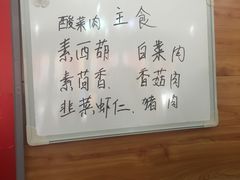 酸菜肉 主食
素西葫 白菜肉
素茴香 香菇肉
韭菜虾仁 猪肉